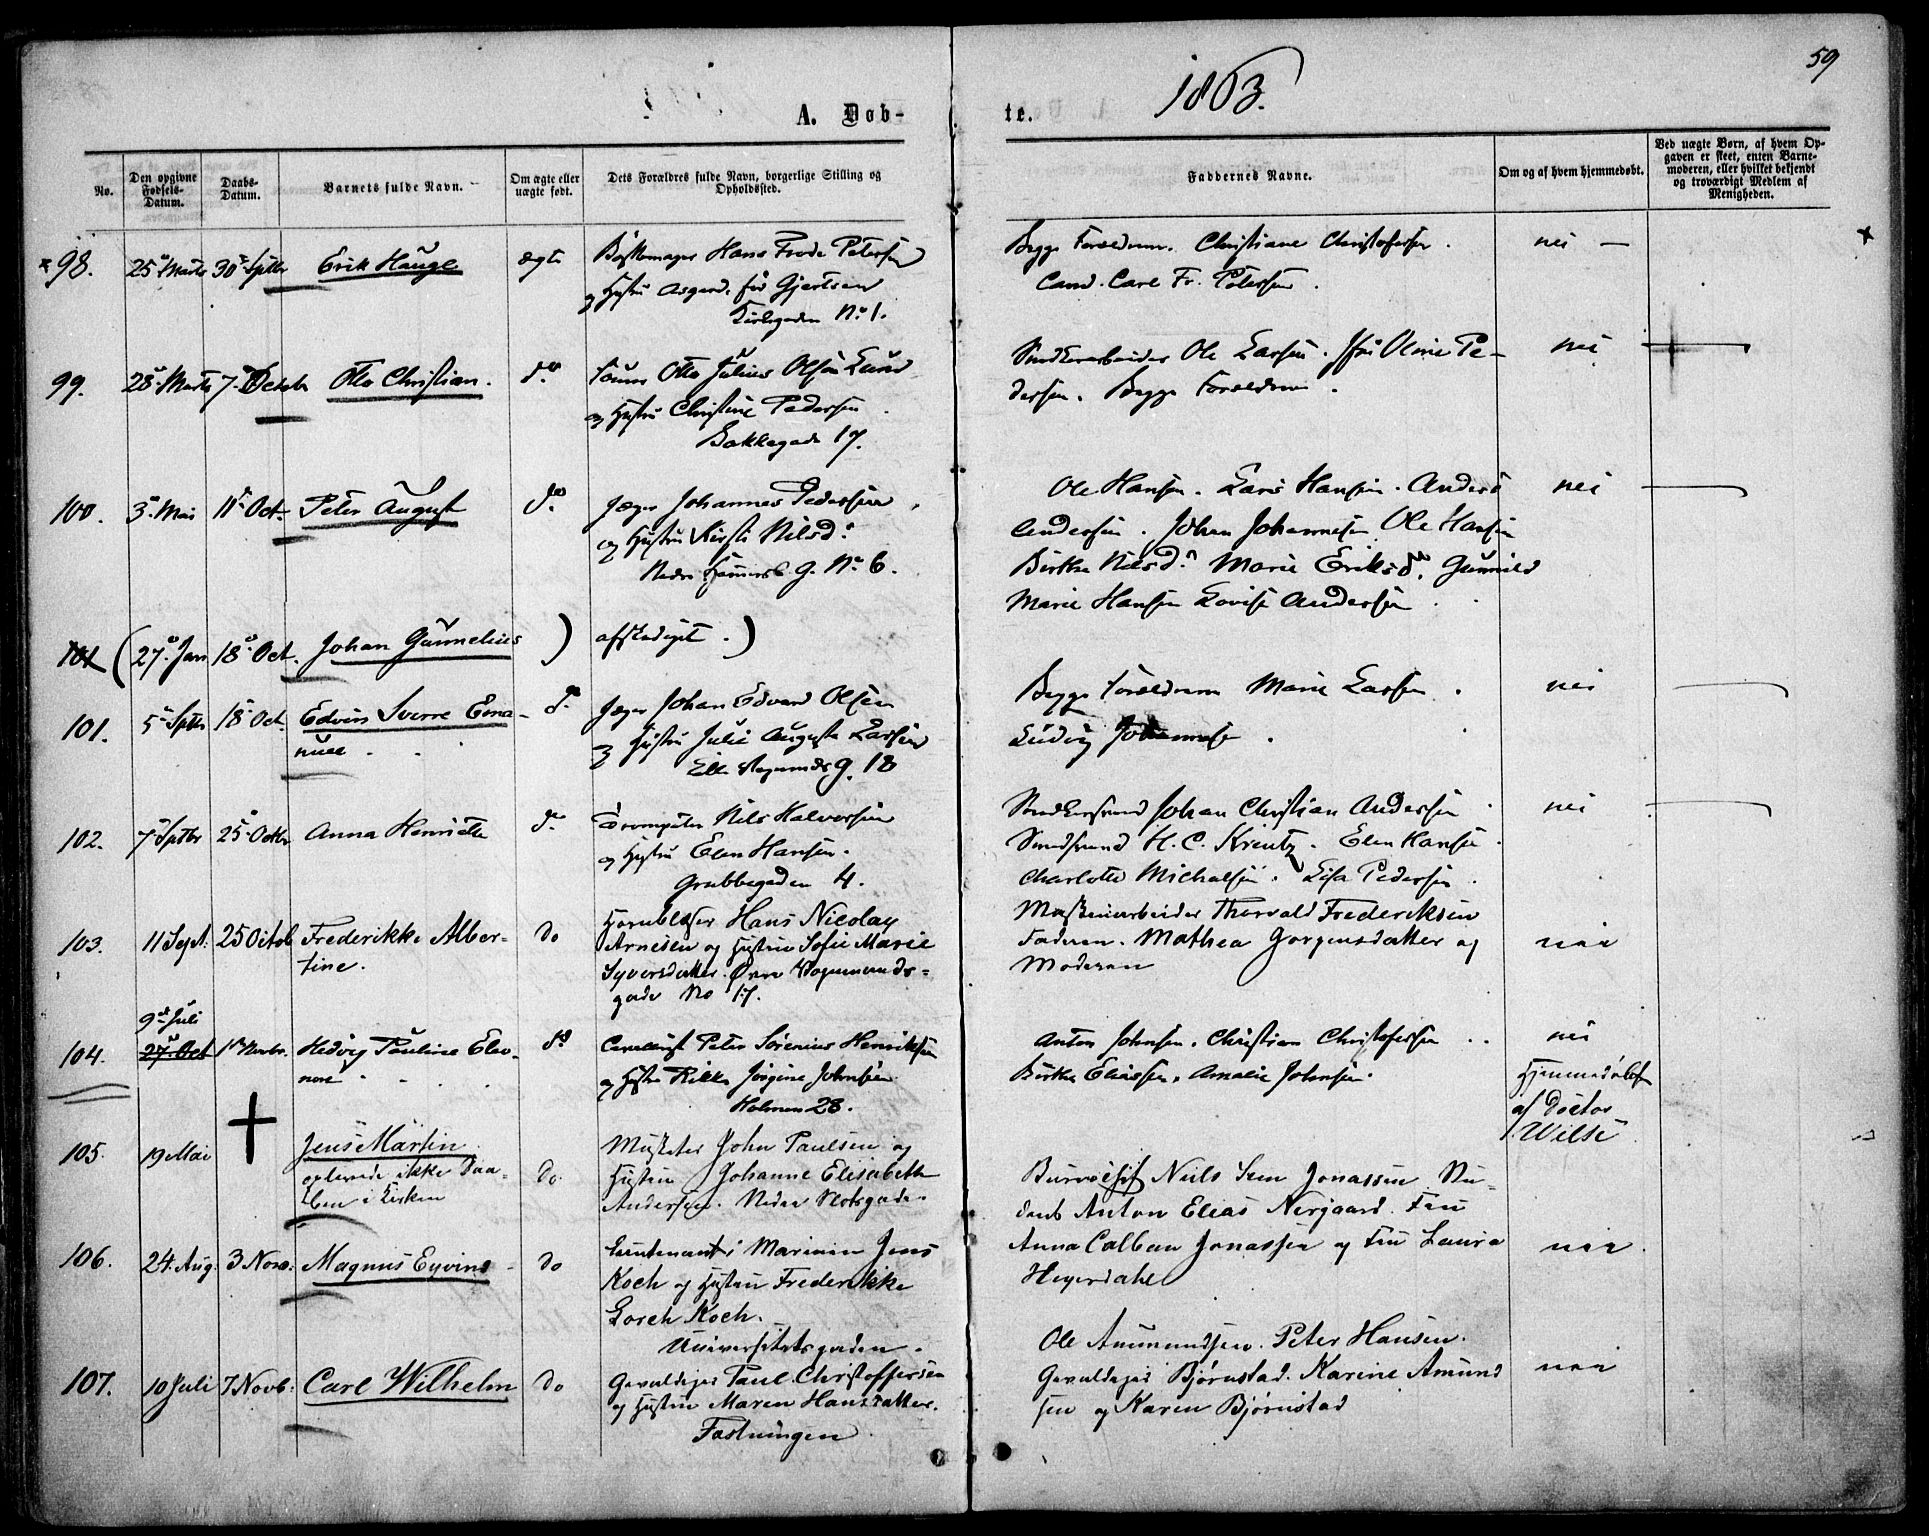 59
1863.
A. Døb-
te.
No.
Den opgivne Fødsels-Datum.
Daabs-Datum.
Barnets fulde Navn.
Om ægte eller uægte født.
Dets Forældres fulde Navn, borgerlige Stilling og Opholdssted.
Faddernes Navne.
Om og af hvem hjemmedøbt.
Ved uægte Børn, af hvem Opgaven er skeet, enten Barnemoderen, eller hvilket bekjendt og troværdigt Medlem af Menigheden.
98. 25 Marts 30 Sptbr Erik Hauge ægte Bøssemager Hans Frode Petersen
og Hustru Asgard. før Gjertsen
Kirkegaden No 1.
Begge Forældrene. Christiane Christofersen.
Cand. Carl Fr. Petersen.
nei —
99. 28 Marts 7 Octob Otto Christian. do Otto Julius Olsen Lund
og Hustru Christine Pedersen
Bakkegade 17.
Snedkerarbeider Ole Larsen. Jfr Oline Pe-
dersen. Begge Forældrene.
nei
100. 3 Mai 11 Oct. Peter August do Jæger Johannes Pedersen
og Hustru Kirsti Nilsd.
Nedre G. No 6.
Ole Hansen. Lars Hansen. Anders
Andersen. Johan Johannesen Ole Hansen
Birthe Nilsd. Marie Eriksd. Gunnild
Marie Hansen Lovise Andersen
nei
101 (27 Jan 18 Oct. Johan Gunnelius)
101. 5 Sptbr 18 Oct. Edvin Sverre Ema-
nuel do Jæger Johan Edvard Olsen
og Hustru Julie Augusta Larsen
Lille Vognmandsg. 18
Begge Forældrene Marie Larsen.
Ludvig Johannes
nei
102. 7 Sptbr 25 Octbr Anna Henriette do Nils Halvorsen
og Hustru Elen Hansen.
Grubbegaden 4.
Snedkersvend Johan Christian Andersen
Smedsvend H. C. Kreutz. Elen Hansen.
Charlotte Michalsen. Lisa Pedersen.
nei
103. 11 Sept. 25 Octob Frederikke Alber-
tine. do Hornblæser Hans Nicolay
Arnesen og Hustru Sofie Marie
Syversdatter. Øvre Vognmands-
gade No 17.
Maskinarbeider Thorvald Frederiksen
Faderen. Mathea Jørgensdatter og
Moderen
nei
104. 9de Juli 27 Oct 1 Novbr. Hedvig Pauline Eleo-
nore do Peter Sørenius Henriksen
og Hustru Rikke Jørgine Johnsen
Holmen 28.
Anton Johnsen. Christian Christofersen
Birthe Eliassen. Amalie Johnsen.
nei
105. 19 Mai Jens Martin
oplevede ikke Daa-
ben i Kirken do. Musketer John Paulsen og
Hustru Johanne Elisabeth
Andersen. Nedre Slotsgade.
Hjemmedøbt
af Doctor
Wilse
106. 24. Aug. 3 Nov. Magnus Eyvind do Lieutenant i Marinen Jens
Koch og Hustru Frederikke
Lorch Koch.
Universitetsgaden.
Bureauchef Niels Sem Jonassen. Stu-
dent Anton Elias Nirgaard. Fru
Anna Calban Jonassen og Fru Laura
Heyerdahl
nei
107. 10 Juli 7 Novb. Carl Wilhelm do Gevaldiger Paul Christoffersen
og Hustru Maren Hansdatter.
Fæstningen
Ole Aamundsen. Peter Hansen.
Gevaldiger Bjørnstad. Karine Amund
sen og Karen Bjørnstad
nei